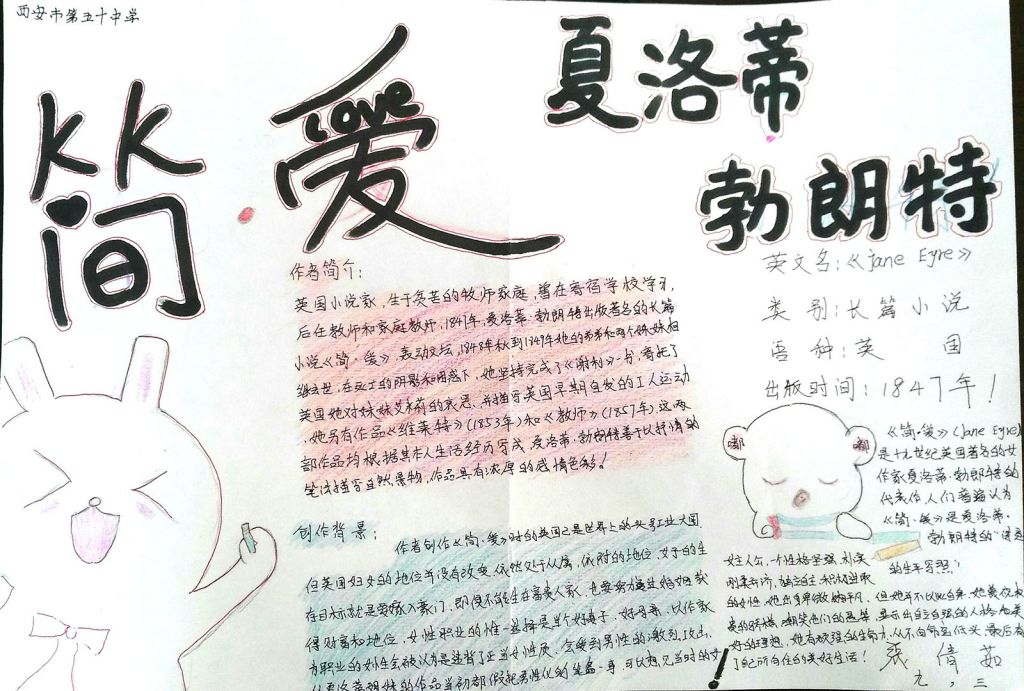 西安市第五十中学
简 爱
Love
夏洛蒂
勃朗特
英文名:《Jane Eyre》
类别:长篇小说
语种:英国
出版时间:1847年!
作者简介:
英国小说家,生于贫苦的牧师家庭,曾在寄宿学校学习,
后任教师和家庭教师,1847年,夏洛蒂·勃朗特出版著名的长篇
小说《简·爱》轰动文坛,1848年秋到1849年她的弟弟和两个妹妹相
继去世,在死亡的阴影和困惑下,她坚持完成了《谢利》一书,寄托了
英国她对妹妹艾米莉的哀思,并描写英国早期自发的工人运动
,她另有作品《维莱特》(1853年)和《教师》(1857年),这两
部作品均根据其本人生活经历写成,夏洛蒂·勃朗特善于以抒情的
笔法描写自然景物,作品具有浓厚的感情色彩!
创作背景:
作者创作《简·爱》时的英国已是世界上的头号工业大国,
但英国妇女的地位并没有改变,依然处于从属,依附的地位,女子的生
存目标就是要嫁入豪门,即便不能生在富贵人家,也要努力通过婚姻获
得财富和地位,女性职业的惟一选择是当个好妻子,好母亲,以作家
为职业的女性会被认为是违背了正当女性气质,会受到男性的激烈攻击,
夏洛蒂姐妹的作品当初都假托男性化的笔名一事,可以想见当时的女
《简·爱》(Jane Eyre)
是十九世纪英国著名的女
作家夏洛蒂·勃朗特的
代表作,人们普遍认为
《简·爱》是夏洛蒂·
勃朗特的"诗意
的生平写照"!
女主人公,一个性格坚强,朴实
刚柔并济,独立自主,积极进取
的女性,她出身卑微,相貌平凡,但她并不以此自卑,她蔑视权
贵的骄横,嘲笑他们的愚笨,显示出自立自强的人格和美
好的理想,她有顽强的生命力,从不向命运低头,最后有
了自己所向往的美好生活!
嘟
嘟
张倩茹
九,三